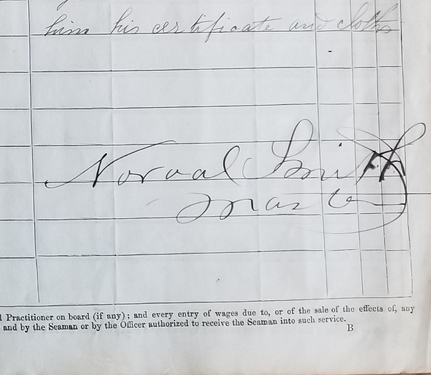 him his certificate and clothes
Norval Smith
Master
l Practitioner on board (if any); and every entry of wages due to, or of the sale of the effects of, any
and by the Seaman or by the Officer authorized to receive the Seaman into such service.
B